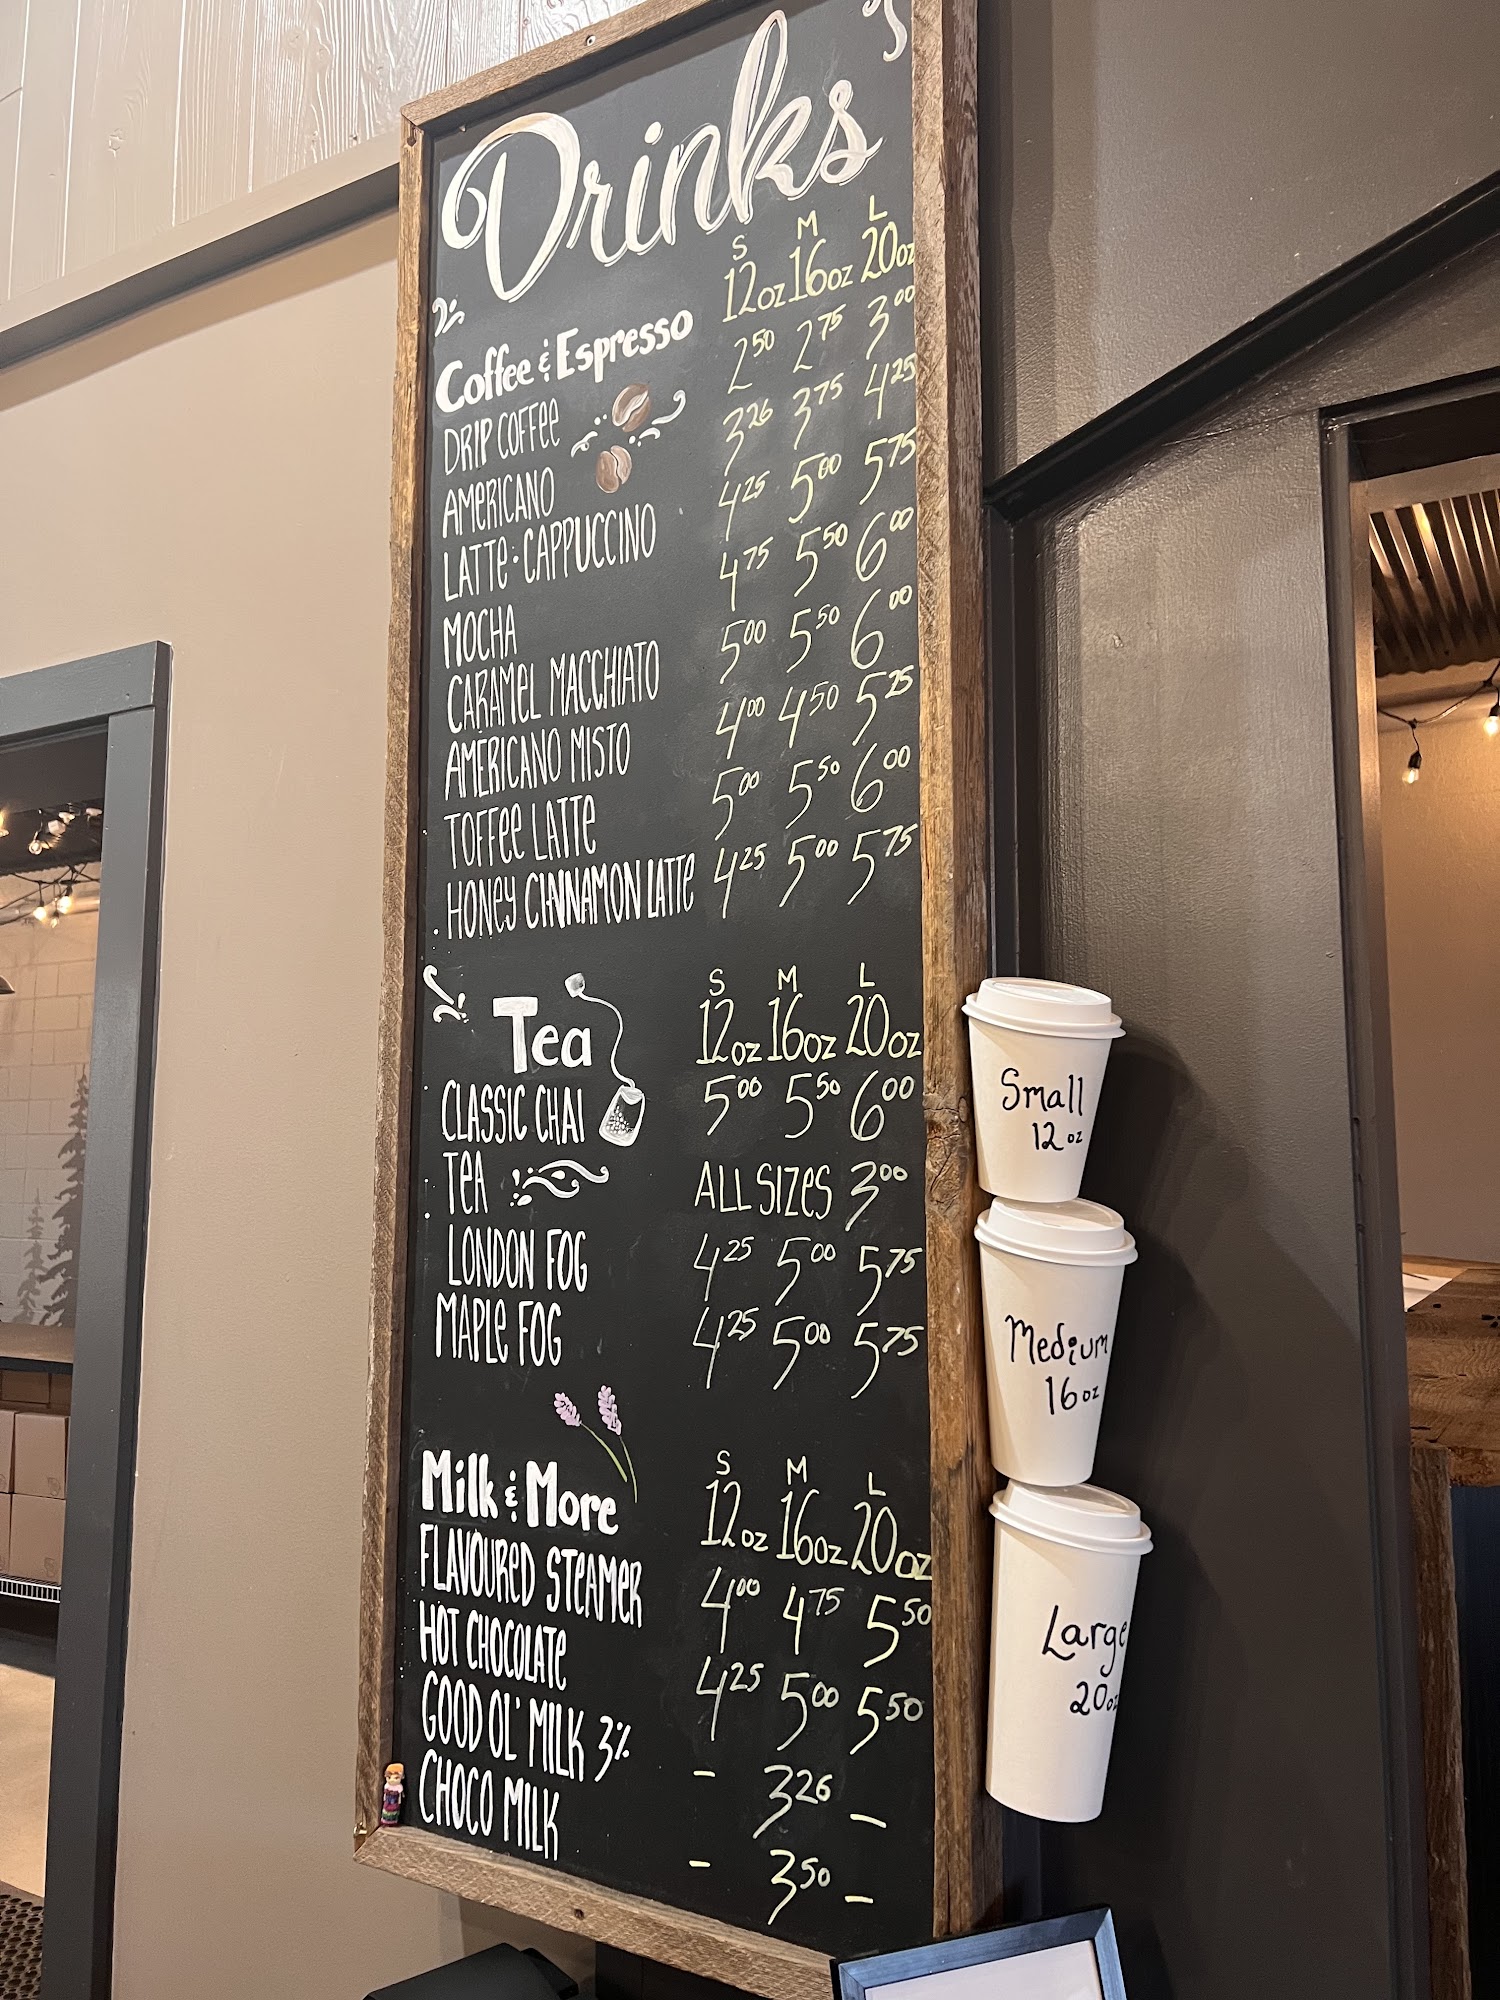 Drinks
S M L
12oz 16oz 20oz
Coffee & Espresso
DRIP COFFEE 2.50 2.75 3.00
AMERICANO 3.26 3.75 4.25
LATTE · CAPPUCCINO 4.25 5.00 5.75
MOCHA 4.75 5.50 6.00
CARAMEL MACCHIATO 5.00 5.50 6.00
AMERICANO MISTO 4.00 4.50 5.25
TOFFEE LATTE 5.00 5.50 6.00
HONEY CINNAMON LATTE 4.25 5.00 5.75
S M L
Tea 12oz 16oz 20oz
CLASSIC CHAI 5.00 5.50 6.00
TEA ALL SIZES 3.00
LONDON FOG 4.25 5.00 5.75
MAPLE FOG 4.25 5.00 5.75
S M L
Milk & More 12oz 16oz 20oz
FLAVOURED STEAMER 4.00 4.75 5.50
HOT CHOCOLATE 4.25 5.00 5.50
GOOD OL' MILK 3% - 3.26 -
CHOCO MILK - 3.50 -
Small
12oz
Medium
16oz
Large
20oz